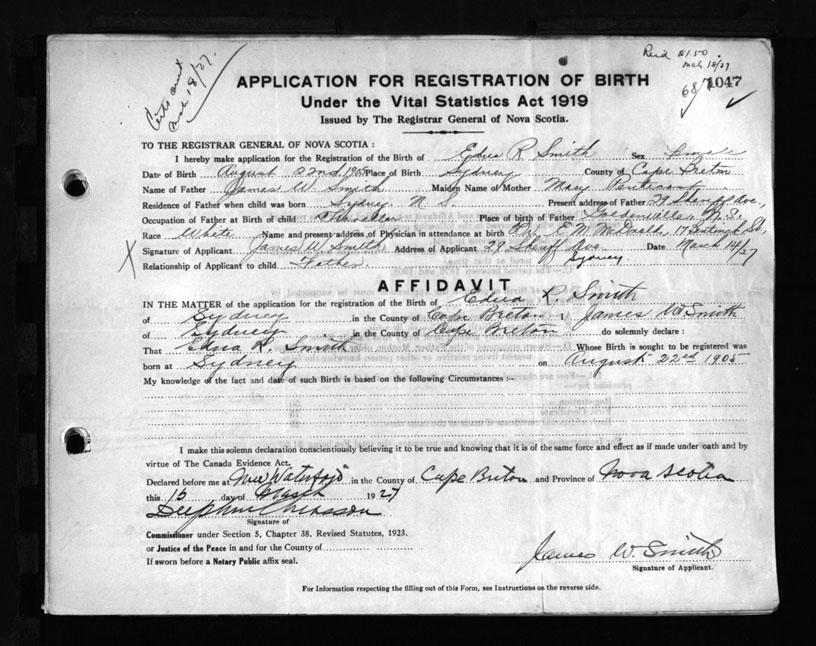 Certs sent
Mch 18/27.
Recd $1.50
Mch 18/27
68/7 1047
APPLICATION FOR REGISTRATION OF BIRTH
Under the Vital Statistics Act 1919
Issued by The Registrar General of Nova Scotia.
TO THE REGISTRAR GENERAL OF NOVA SCOTIA :
I hereby make application for the Registration of the Birth of Edna R. Smith Sex Female
Date of Birth August 22nd, 1905 Place of Birth Sydney County of Cape Breton
Name of Father James W Smith Maiden Name of Mother Mary
Residence of Father when child was born Sydney N S Present address of Father 29 Sheriff Ave.,
Occupation of Father at Birth of child Place of birth of Father Goldenville, N.S.
Race White Name and present address of Physician in attendance at birth Dr. E. M. McDonald, 17 St,
X Signature of Applicant James W Smith Address of Applicant 29 Sheriff Ave. Sydney Date March 14/27
Relationship of Applicant to child Father.
AFFIDAVIT
IN THE MATTER of the application for the registration of the Birth of Edna R. Smith
of Sydney in the County of Cape Breton I James W Smith
of Sydney in the County of Cape Breton do solemnly declare :
That Edna R. Smith Whose Birth is sought to be registered was
born at Sydney on August 22nd 1905
My knowledge of the fact and date of such Birth is based on the following Circumstances :—
I make this solemn declaration conscientiously believing it to be true and knowing that it is of the same force and effect as if made under oath and by
virtue of The Canada Evidence Act.
Declared before me at New Waterford in the County of Cape Breton and Province of Nova Scotia
this 15 day of March 1927
Signature of
Commissioner under Section 5, Chapter 38, Revised Statutes, 1923.
or Justice of the Peace in and for the County of
James W. Smith
If sworn before a Notary Public affix seal.
Signature of Applicant.
For Information respecting the filling out of this Form, see Instructions on the reverse side.